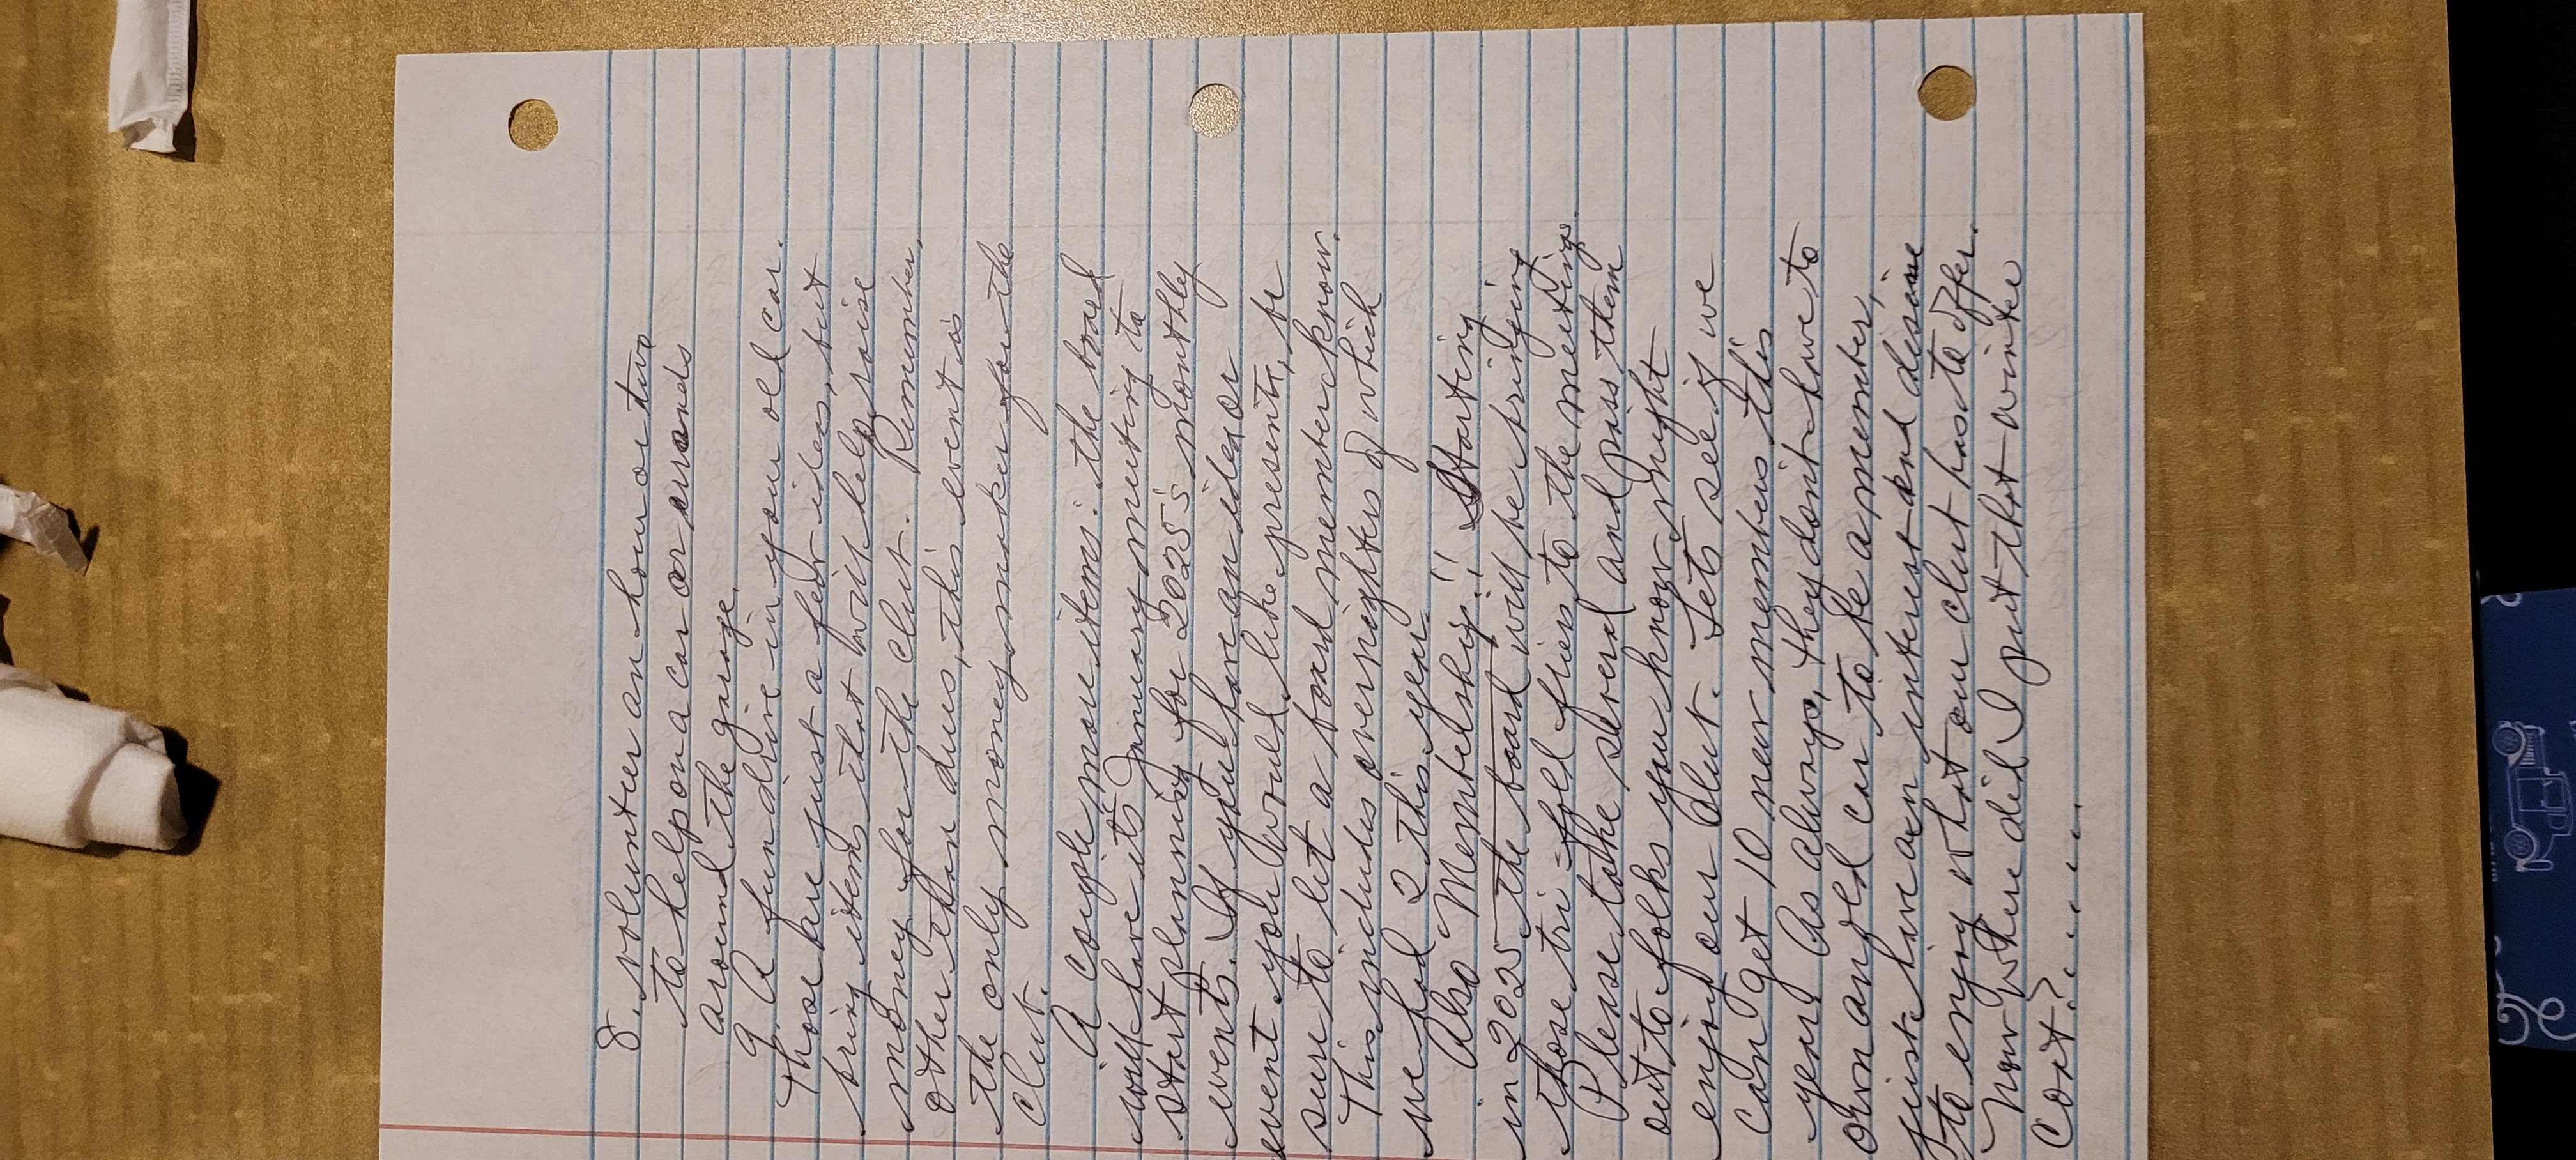 8. volunteer an hour or two
to help on a car or errands
around the garage.
9. A fun drive in your old car.
Those are just a few ideas, but
bring items that will help raise
money for the club. Remember,
other than dues, this event is
the only money maker for the
club.
A couple more items: the board
will have it's January meeting to
start planning for 2025's monthly
events. If you have an idea or
event you would like presents, be
sure to let a board member know.
This includes overnighters of which
we had 2 this year.
Also Membership!! Starting
in 2025 the board will be bringing
those tri-fold fliers to the meetings.
Please take several and pass them
out to folks you know might
enjoy our club. Lets see if we
can get 10 new members this
year. As always, they don't have to
own an old car to be a member,
just have an interest and desire
to enjoy what our club has to offer.
Now where did I put that winter
coat?......